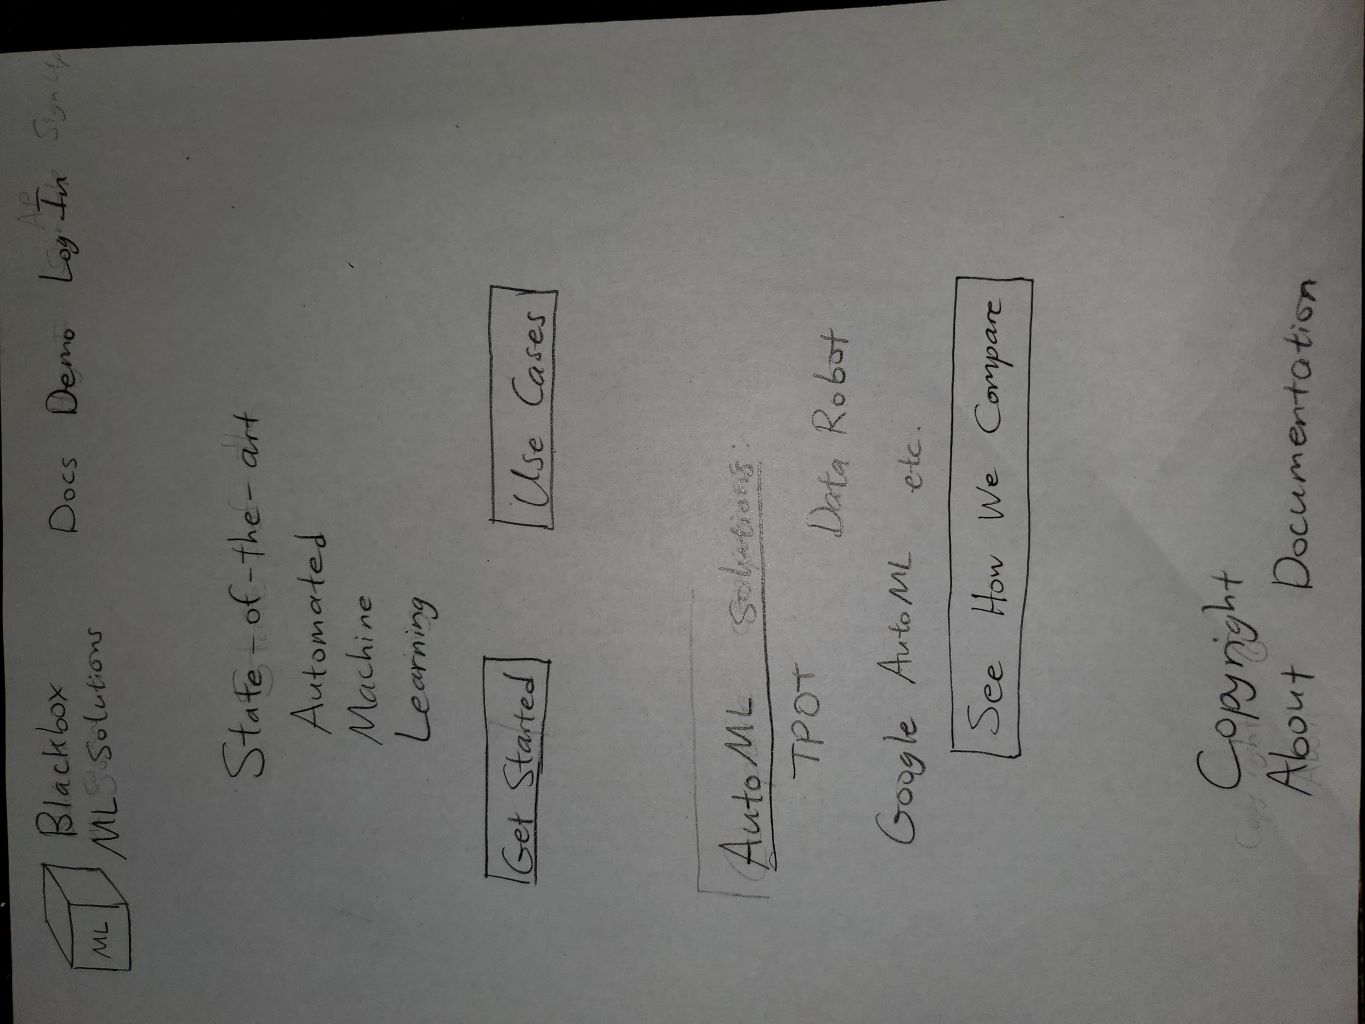 ML
Blackbox
ML Solutions
Docs Demo Log In Sign Up
State-of-the-art
Automated
Machine
Learning
Get Started
Use Cases
AutoML Solutions:
TPOT
Data Robot
Google AutoML etc.
See How We Compare
Copyright
About Documentation